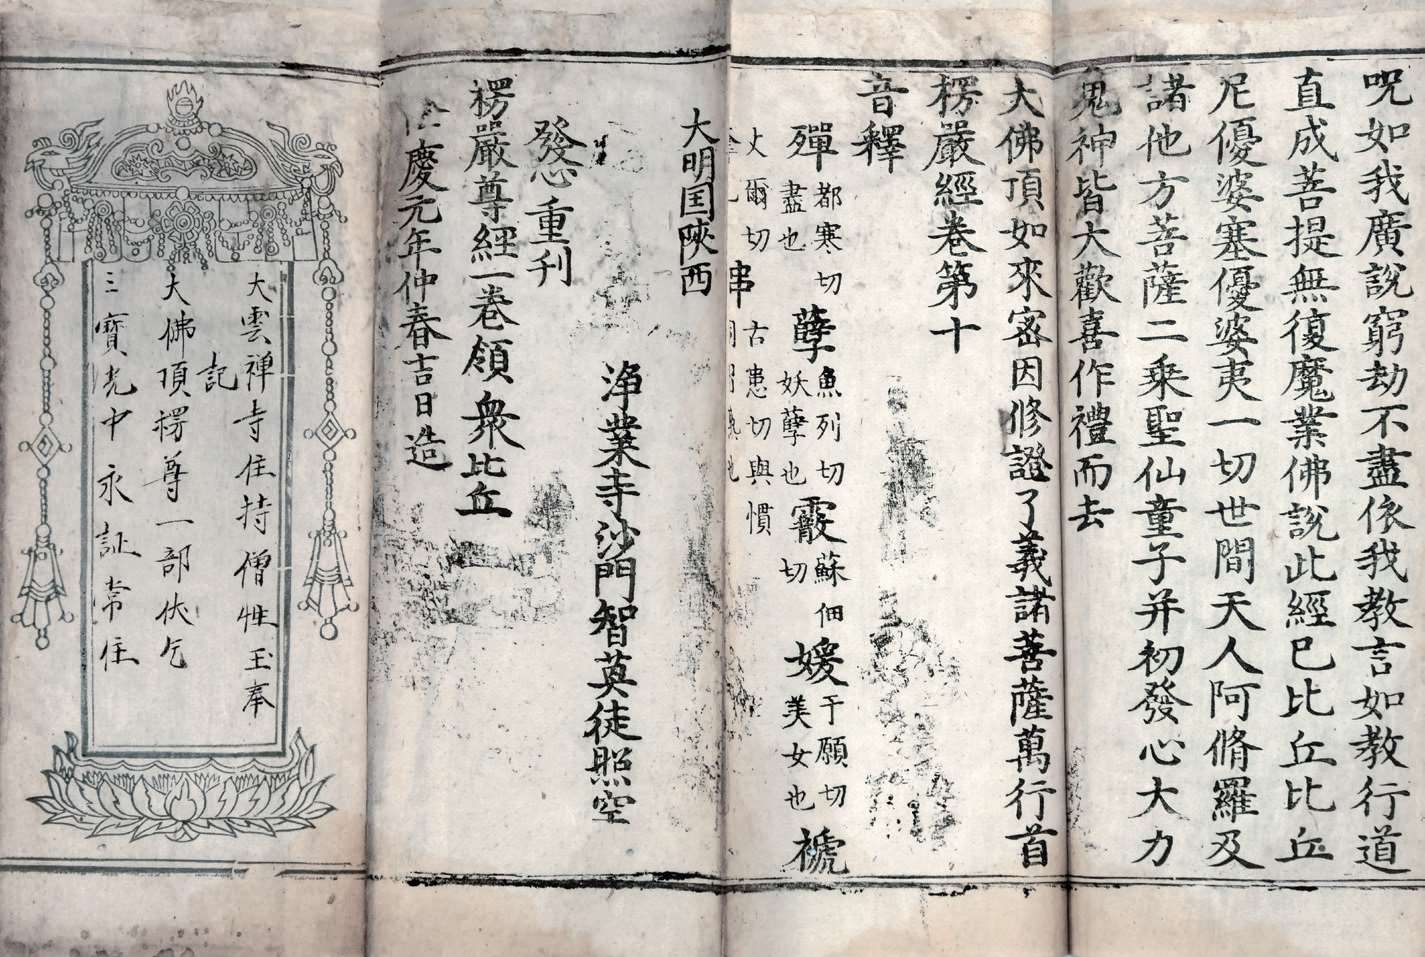 呪如我廣說窮劫不盡依我教言如教行道
直成菩提無復魔業佛說此經已比丘比丘
尼優婆塞優婆夷一切世間天人阿脩羅及
諸他方菩薩二乘聖仙童子并初發心大力
鬼神皆大歡喜作禮而去
大佛頂如來密因修證了義諸菩薩萬行首
楞嚴經卷第十
音釋
殫 都寒切
盡也
孽 魚列切
妖孽也
霰 蘇佃
切
媛 于願切
美女也
褫
丈爾切
串 古患切與慣
大明国陝西
淨業寺沙門智英徒照空
發心重刋
楞嚴尊經一卷領衆比丘
慶元年仲春吉日造
大雲禅寺住持僧性玉奉
記
大佛頂楞尊一部伏乞
三寶光中永証常住